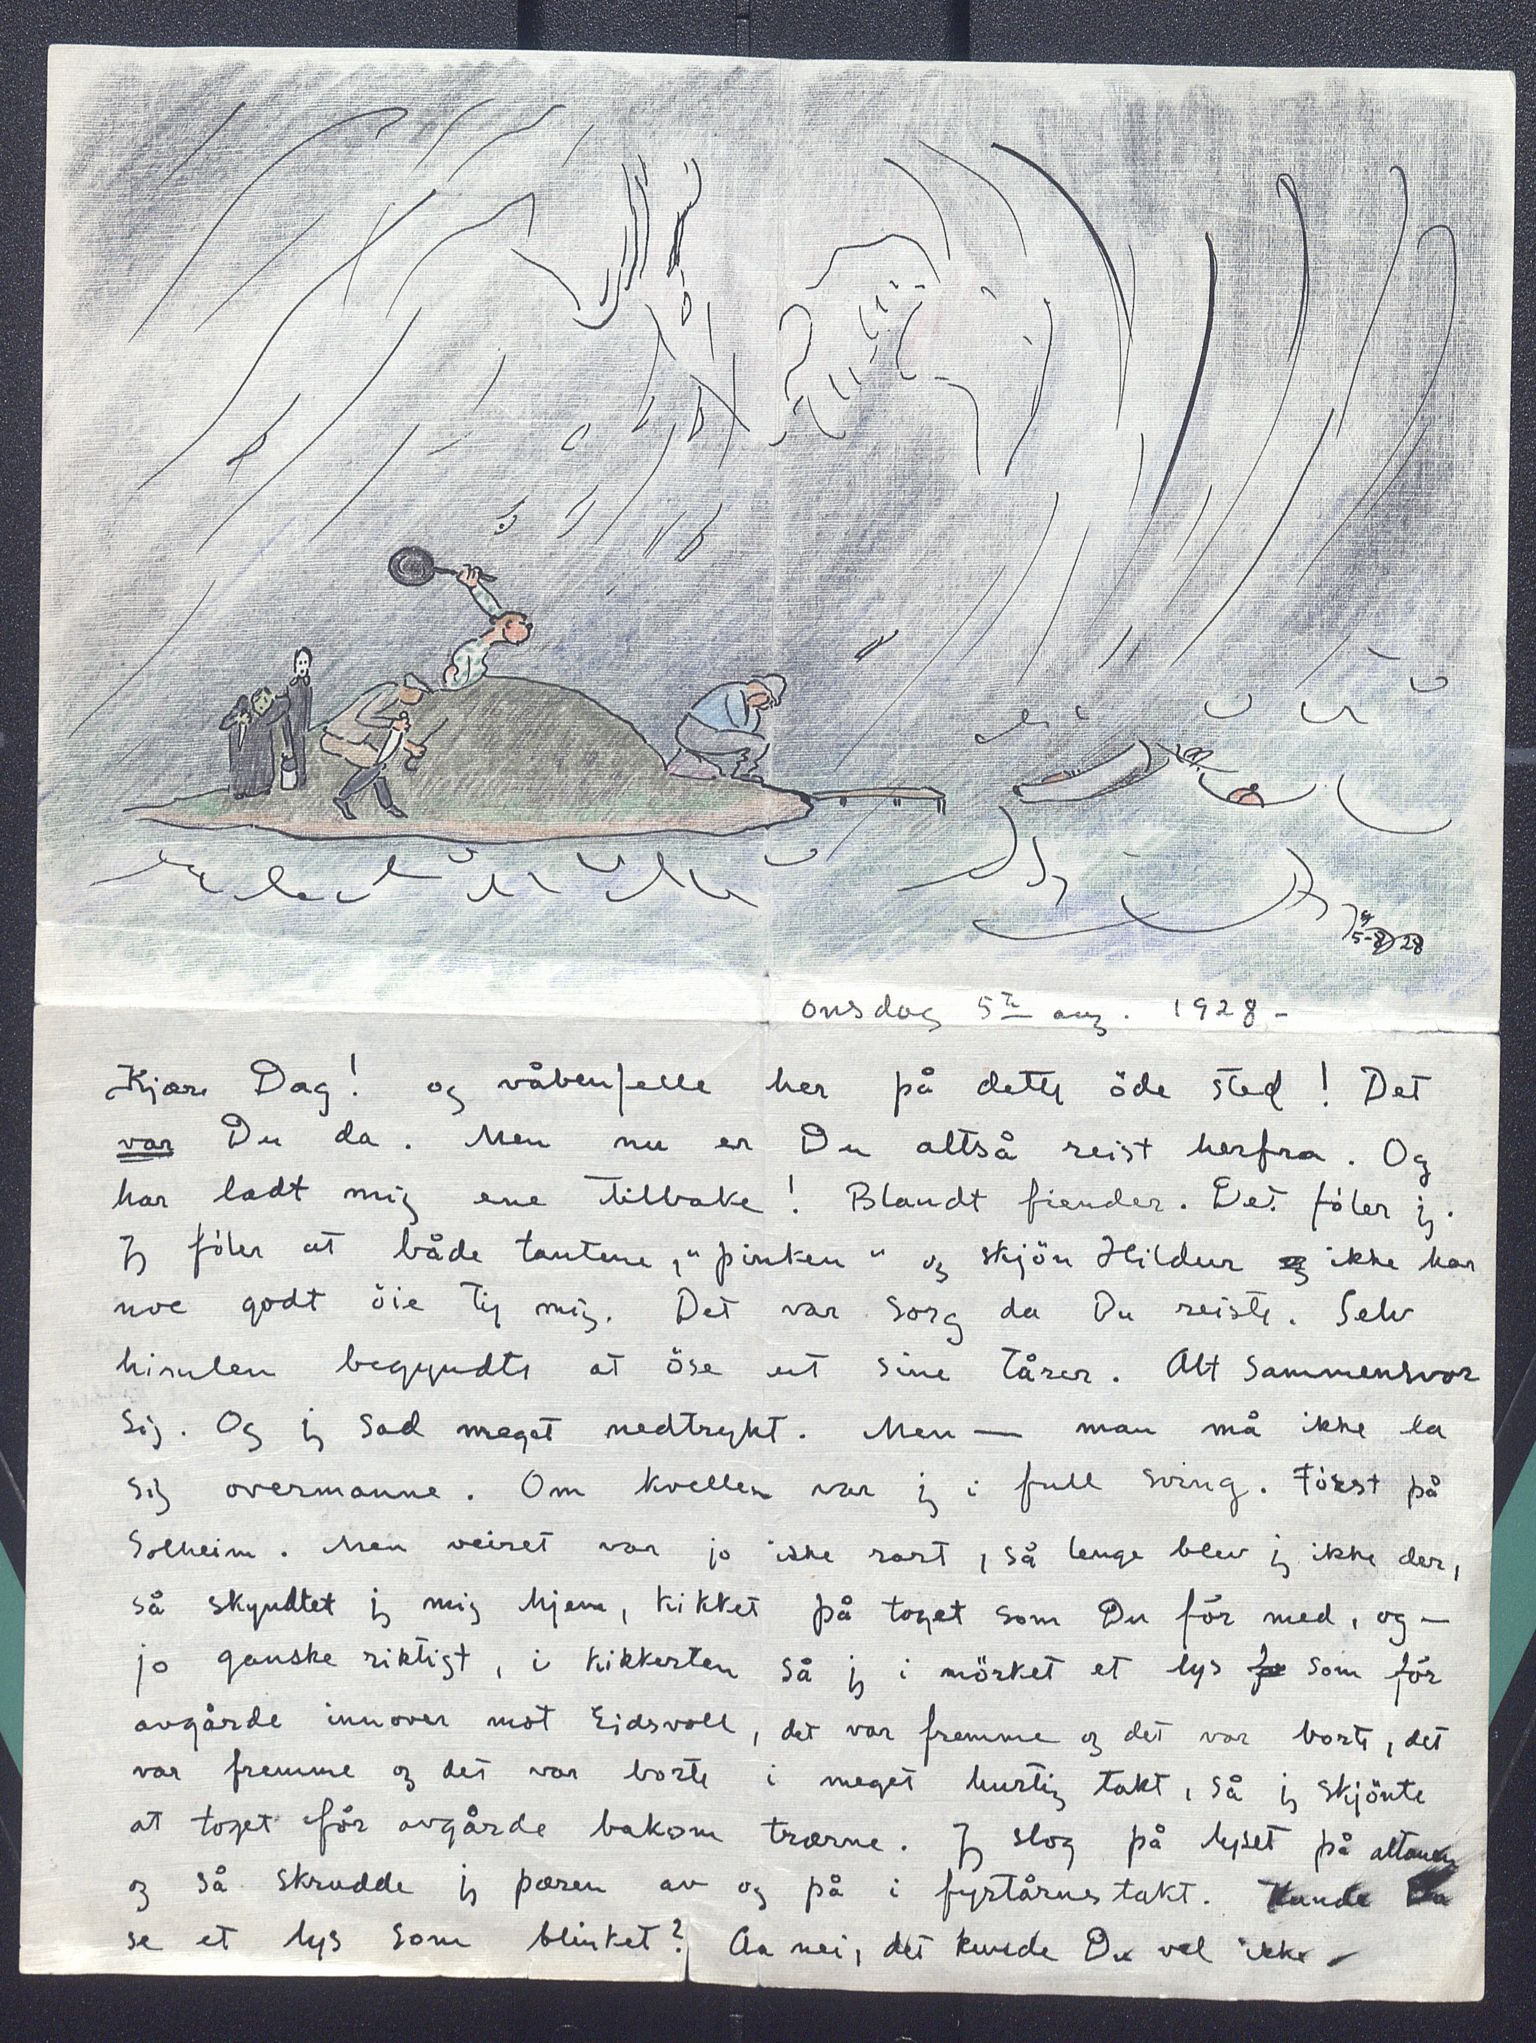 5-8-28
onsdag 5te aug. 1928-
Kjære Dag! og våbenfelle her på dette öde sted! Det
var Du da. Men nu er Du altså reist herfra. Og
har ladt mig ene tilbake! Blandt fiender. Det föler jg.
Jg föler at både tantene, "pinken" og skjön Hildur ikke har
noe godt öie til mig. Det var sorg da Du reiste. Selv
himlen begyndte at öse ut sine tårer. Alt sammensvor
sig. Og jg sad meget nedtrykt. Men — man må ikke la
sig overmanne. Om kvellen var jg i full sving. Först på
Solheim. Men veiret var jo ikke rart, så lenge blev jg ikke der,
så skyndtet jg mig hjem, kikket på toget som Du fór med, og —
jo ganske riktigt, i kikkerten så jg i mörket et lys som fór
avgårde innover mot Eidsvoll, det var fremme og det var borte, det
var fremme og det var borte i meget hurtig takt, så jg skjönte
at toget fór avgårde bakom trærne. Jg slog på lyset på altanen
og så skrudde jg pæren av og på i fyrtårnes takt. Kunde Du
se et lys som blinket? Aa nei, det kunde Du vel ikke —